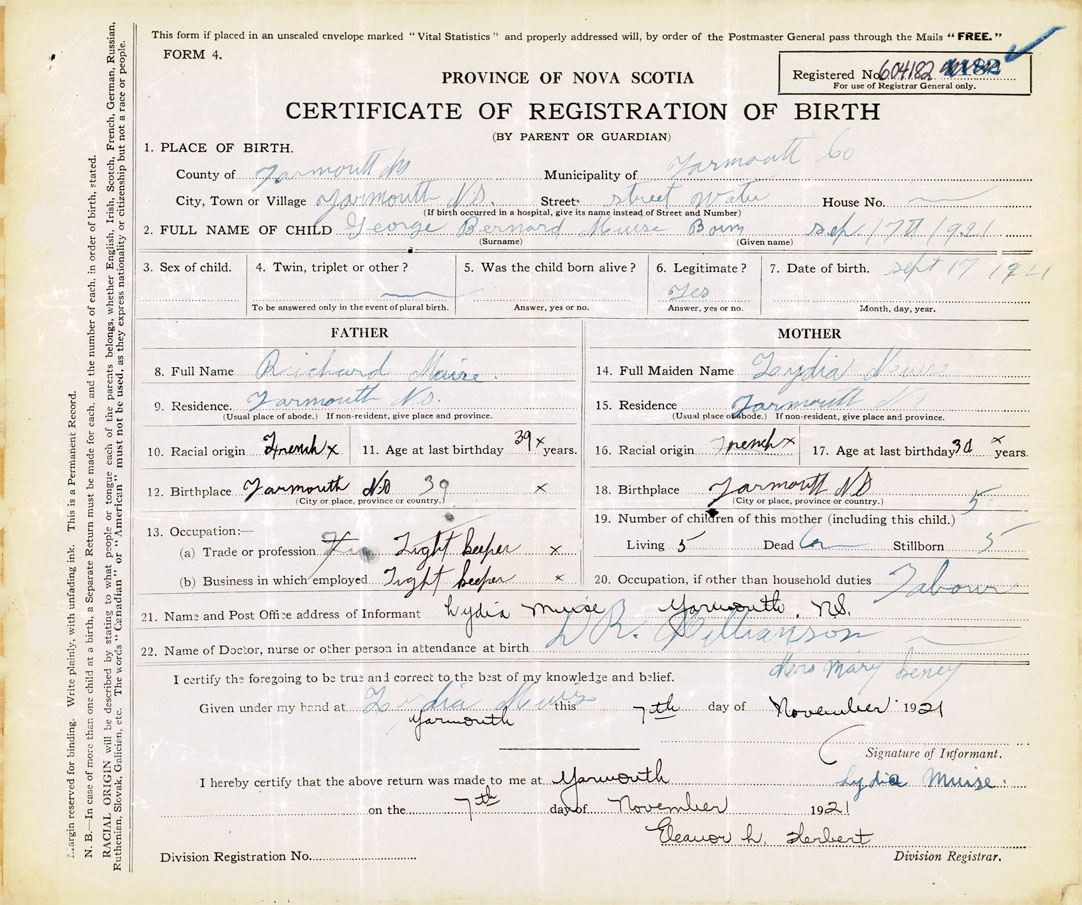 This form if placed in an unsealed envelope marked "Vital Statistics" and properly addressed will, by order of the Postmaster General pass through the Mails "FREE."
FORM 4.
PROVINCE OF NOVA SCOTIA
Registered No. 604182 1182
For use of Registrar General only.
CERTIFICATE OF REGISTRATION OF BIRTH
(BY PARENT OR GUARDIAN)
1. PLACE OF BIRTH.
County of Yarmouth Municipality of Yarmouth Co
City, Town or Village Yarmouth N.S. Street street Water House No.
(If birth occurred in a hospital, give its name instead of Street and Number)
2. FULL NAME OF CHILD George Bernard Muise Born Sep. 17th 1921
(Surname) (Given name)
3. Sex of child. 4. Twin, triplet or other? 5. Was the child born alive? 6. Legitimate? 7. Date of birth. Sept 17 1921
Yes
To be answered only in the event of plural birth. Answer, yes or no. Answer, yes or no. Month, day, year.
FATHER MOTHER
8. Full Name Richard Muise. 14. Full Maiden Name Lydia Muise
9. Residence. Yarmouth N.S. 15. Residence Yarmouth N.S.
(Usual place of abode.) If non-resident, give place and province. (Usual place of abode.) If non-resident, give place and province.
10. Racial origin French x 11. Age at last birthday 39 x years. 16. Racial origin French x 17. Age at last birthday x years.
12. Birthplace Yarmouth N.S 39 x 18. Birthplace Yarmouth N.S
(City or place, province or country.) (City or place, province or country.)
13. Occupation:— 19. Number of children of this mother (including this child.) 5
(a) Trade or profession Light keeper x Living 5 Dead Stillborn 5
(b) Business in which employed Light keeper x 20. Occupation, if other than household duties Labour
21. Name and Post Office address of Informant Lydia Muise Yarmouth, N.S.
22. Name of Doctor, nurse or other person in attendance at birth DR. Williamson
Mrs Mary
I certify the foregoing to be true and correct to the best of my knowledge and belief.
Given under my hand at Lydia Muise this 7th day of November 1921
Yarmouth
Signature of Informant.
I hereby certify that the above return was made to me at Yarmouth Lydia Muise.
on the 7th day of November 1921
Eleanor L. Herbert
Division Registration No. Division Registrar.
Margin reserved for binding. Write plainly, with unfading ink. This is a Permanent Record.
N. B.—In case of more than one child at a birth, a Separate Return must be made for each, and the number of each, in order of birth, stated.
RACIAL ORIGIN will be described by stating to what people or tongue each of the parents belongs, whether English, Irish, Scotch, French, German, Russian,
Ruthenian, Slovak, Galician, etc. The words "Canadian" or "American" must not be used, as they express nationality or citizenship but not a race or people.